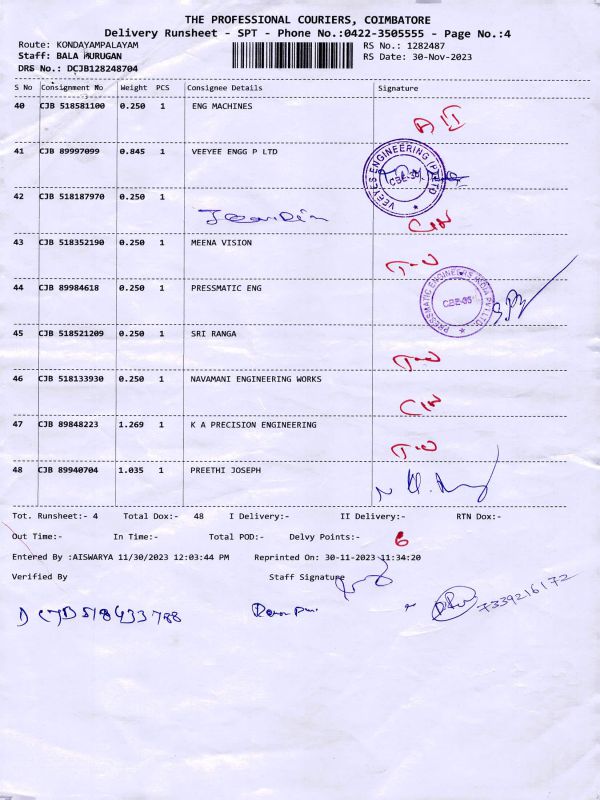 THE PROFESSIONAL COURIERS, COIMBATORE
Delivery Runsheet - SPT - Phone No.:0422-3505555 - Page No.:4
Route: KONDAYAMPALAYAM RS No.: 1282487
Staff: BALA MURUGAN RS Date: 30-Nov-2023
DRS No.: DCJB128248704
S No Consignment No Weight PCS Consignee Details Signature
40 CJB 518581100 0.250 1 ENG MACHINES
41 CJB 89997099 0.845 1 VEEYEE ENGG P LTD
VEEYES ENGINEERING (P) LTD
CBE-35
42 CJB 518187970 0.250 1
CIN
43 CJB 518352190 0.250 1 MEENA VISION
T-W
44 CJB 89984618 0.250 1 PRESSMATIC ENG
PRESSMATIC ENGINEERS INDIA PVT LTD.
CBE-35
45 CJB 518521209 0.250 1 SRI RANGA
T-W
46 CJB 518133930 0.250 1 NAVAMANI ENGINEERING WORKS
CIN
47 CJB 89848223 1.269 1 K A PRECISION ENGINEERING
T-W
48 CJB 89940704 1.035 1 PREETHI JOSEPH
Tot. Runsheet:- 4 Total Dox:- 48 I Delivery:- II Delivery:- RTN Dox:-
Out Time:- In Time:- Total POD:- Delvy Points:- 6
Entered By :AISWARYA 11/30/2023 12:03:44 PM Reprinted On: 30-11-2023 11:34:20
Verified By Staff Signature
D CJB 518433788 7339216172